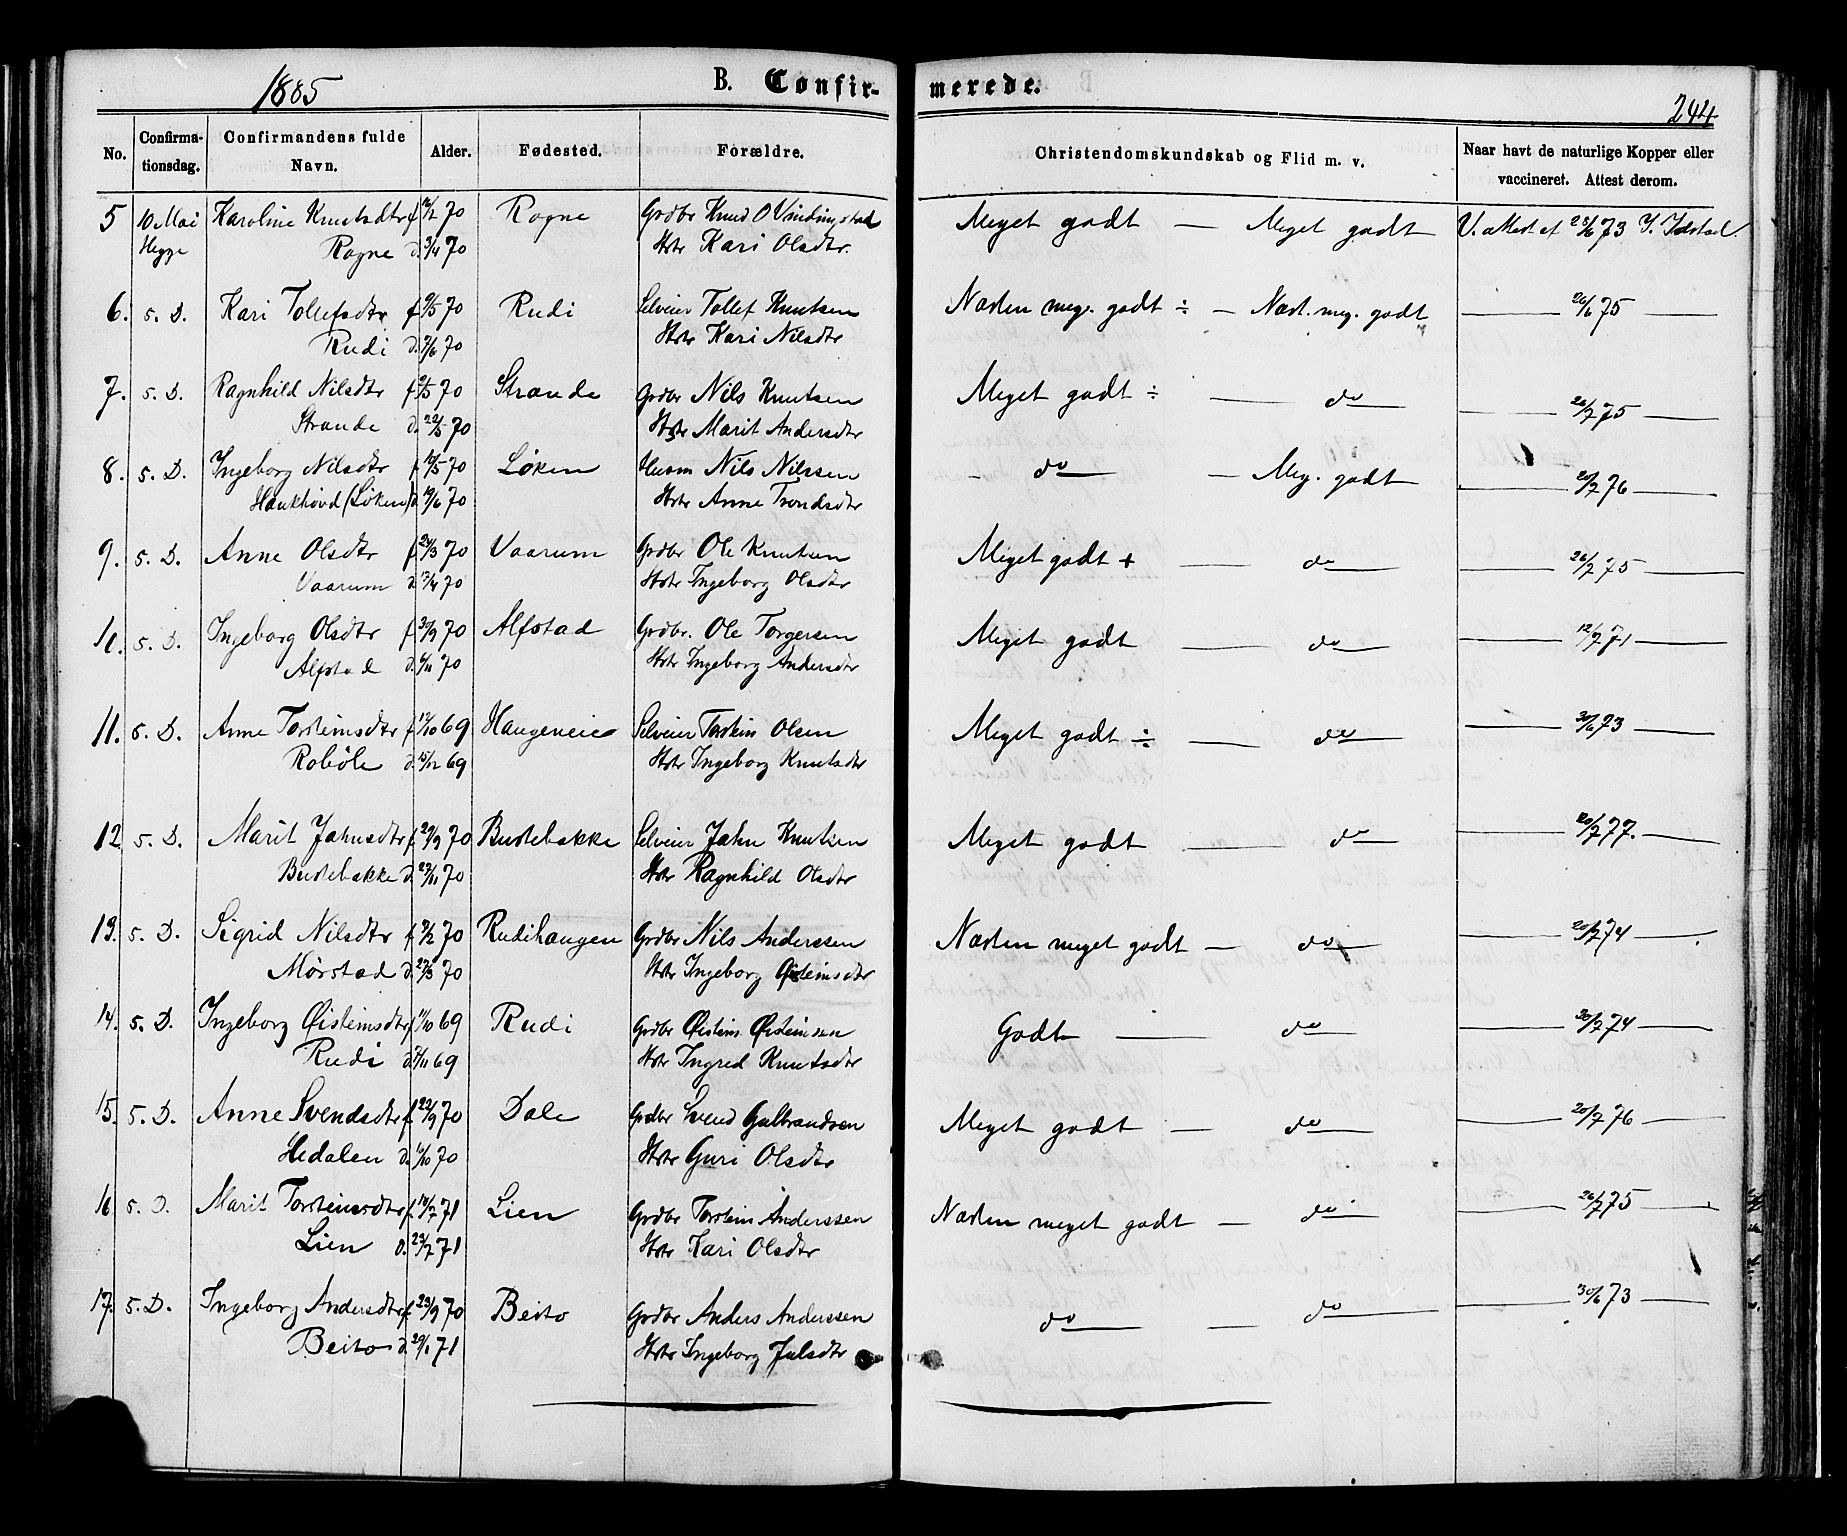 1885
B. Confirmerede.
244
No.
Confirmationsdag.
Confirmandens fulde Navn.
Alder.
Fødested.
Forældre.
Christendomskundskab og Flid m. v.
Naar havt de naturlige Kopper eller vaccineret. Attest derom.
5 10 Mai Karoline Knutsdtr f 70 Rogne Grdbr Knud O Vindingstad Meget godt — Meget godt V. attest af 73 Y. Idstad.
Hegge Rogne d. 3/4 70 Hstr Kari Olsdtr.
6. s. D. Kari Tollefsdtr f 9/5 70 Rudi Selveier Tollef Knutsen Næsten meg. godt ÷ — Næst. meg. godt 26/6 75
Rudi d. 7/6 70 Hstr Kari Nilsdtr
7. s. D. Ragnhild Nilsdtr f 70 Strande Grdbr Nils Knutsen Meget godt ÷ — do 26/7 75
Strande d. 22/5 70 Hstr Marit Andersdtr
8. s. D. Ingeborg Nilsdtr f 70 Løken Husm Nils Nilssen — do — Meg. godt 20/7 76
Haukhøvd (Løken) d 19/6 70 Hstr Anne Trondsdtr
9. s. D. Anne Olsdtr f. 24/3 70 Vaarum Grdbr Ole Knutsen Meget godt + — do 26/7 75
Vaarum d. 17/4 70 Hstr Ingeborg Olsdtr
10. s. D. Ingeborg Olsdtr f 30/9 70 Alfstad Grdbr. Ole Torgersen Meget godt — do 12/7 71
Alfstad d. 6/11 70 Hstr Ingeborg Andersdtr
11. s. D. Anne Torsteinsdtr f 69 Haugeneie Selveier Torstein Olsen Meget godt ÷ — do 30/6 73
Robøle d. 15/12 69 Hstr Ingeborg Knutsdtr
12 s. D. Marit Jahnsdtr f 29/9 70 Bustebakke Selveier Jahn Knutsen Meget godt — do 20/7 77.
Bustebakke d. 27/11 70 Hstr Ragnhild Olsdtr
13. s. D. Sigrid Nilsdtr f 70 Rudihaugen Grdbr Nils Anderssen Næsten meget godt — do 20/7 74
Mørstad d. 27/3 70 Hstr Ingeborg Øisteinsdtr
14. s. D. Ingeborg Øisteinsdtr f 11/10 69 Rudi Grdbr Øistein Øisteinsen Godt — do 30/7 74
Rudi d. 7/11 69 Hstr Ingrid Knutsdtr
15. s. D. Anne Svendsdtr f. 22/9 70 Dale Grdbr Svend Gulbrandsen Meget godt — do 20/7 76
Hedalen d. 70 Hstr Guri Olsdtr
16 s. D. Marit Torsteinsdtr f. 71 Lien Grdbr Torstein Anderssen Næsten meget godt — do 26/7 75
Lien d. 71 Hstr Kari Olsdtr
17. s. D. Ingeborg Andersdtr f. 23/9 70 Beito Grdbr Anders Anderssen do — do 30/6 73
Beito d. 29/1 71 Hstr Ingeborg Julsdtr